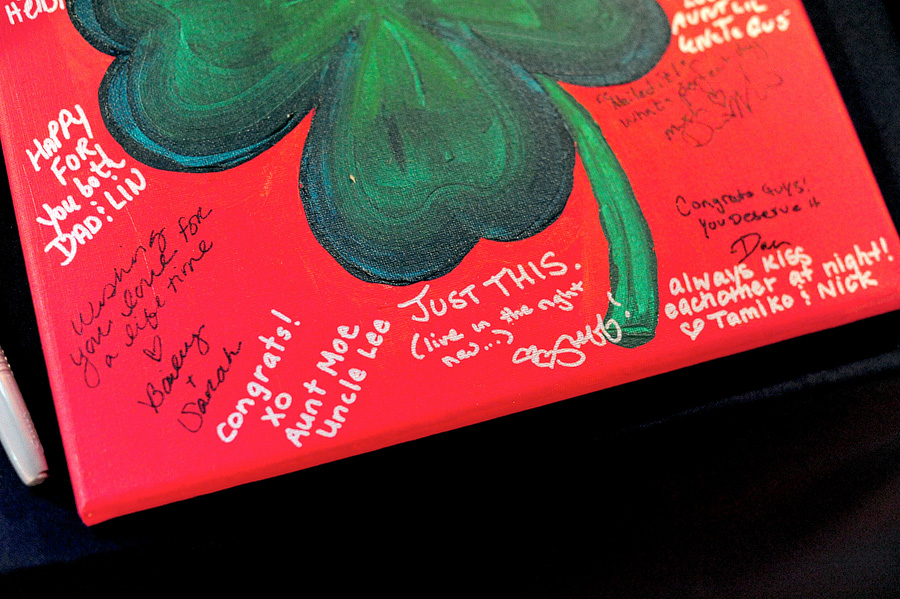 Heidi
HAPPY
FOR
you both
DAD & LIN
Wishing
you love for
a life time
Bailey
+
Sarah
congrats!
XO
Aunt Moe
Uncle Lee
JUST THIS.
(live in the right
now...)
AUNT LIL
UNCLE GUS
"Nailed it!"
what a
Congrats Guys!
You Deserve it
Dan
always kiss
eachother at night!
Tamiko & Nick